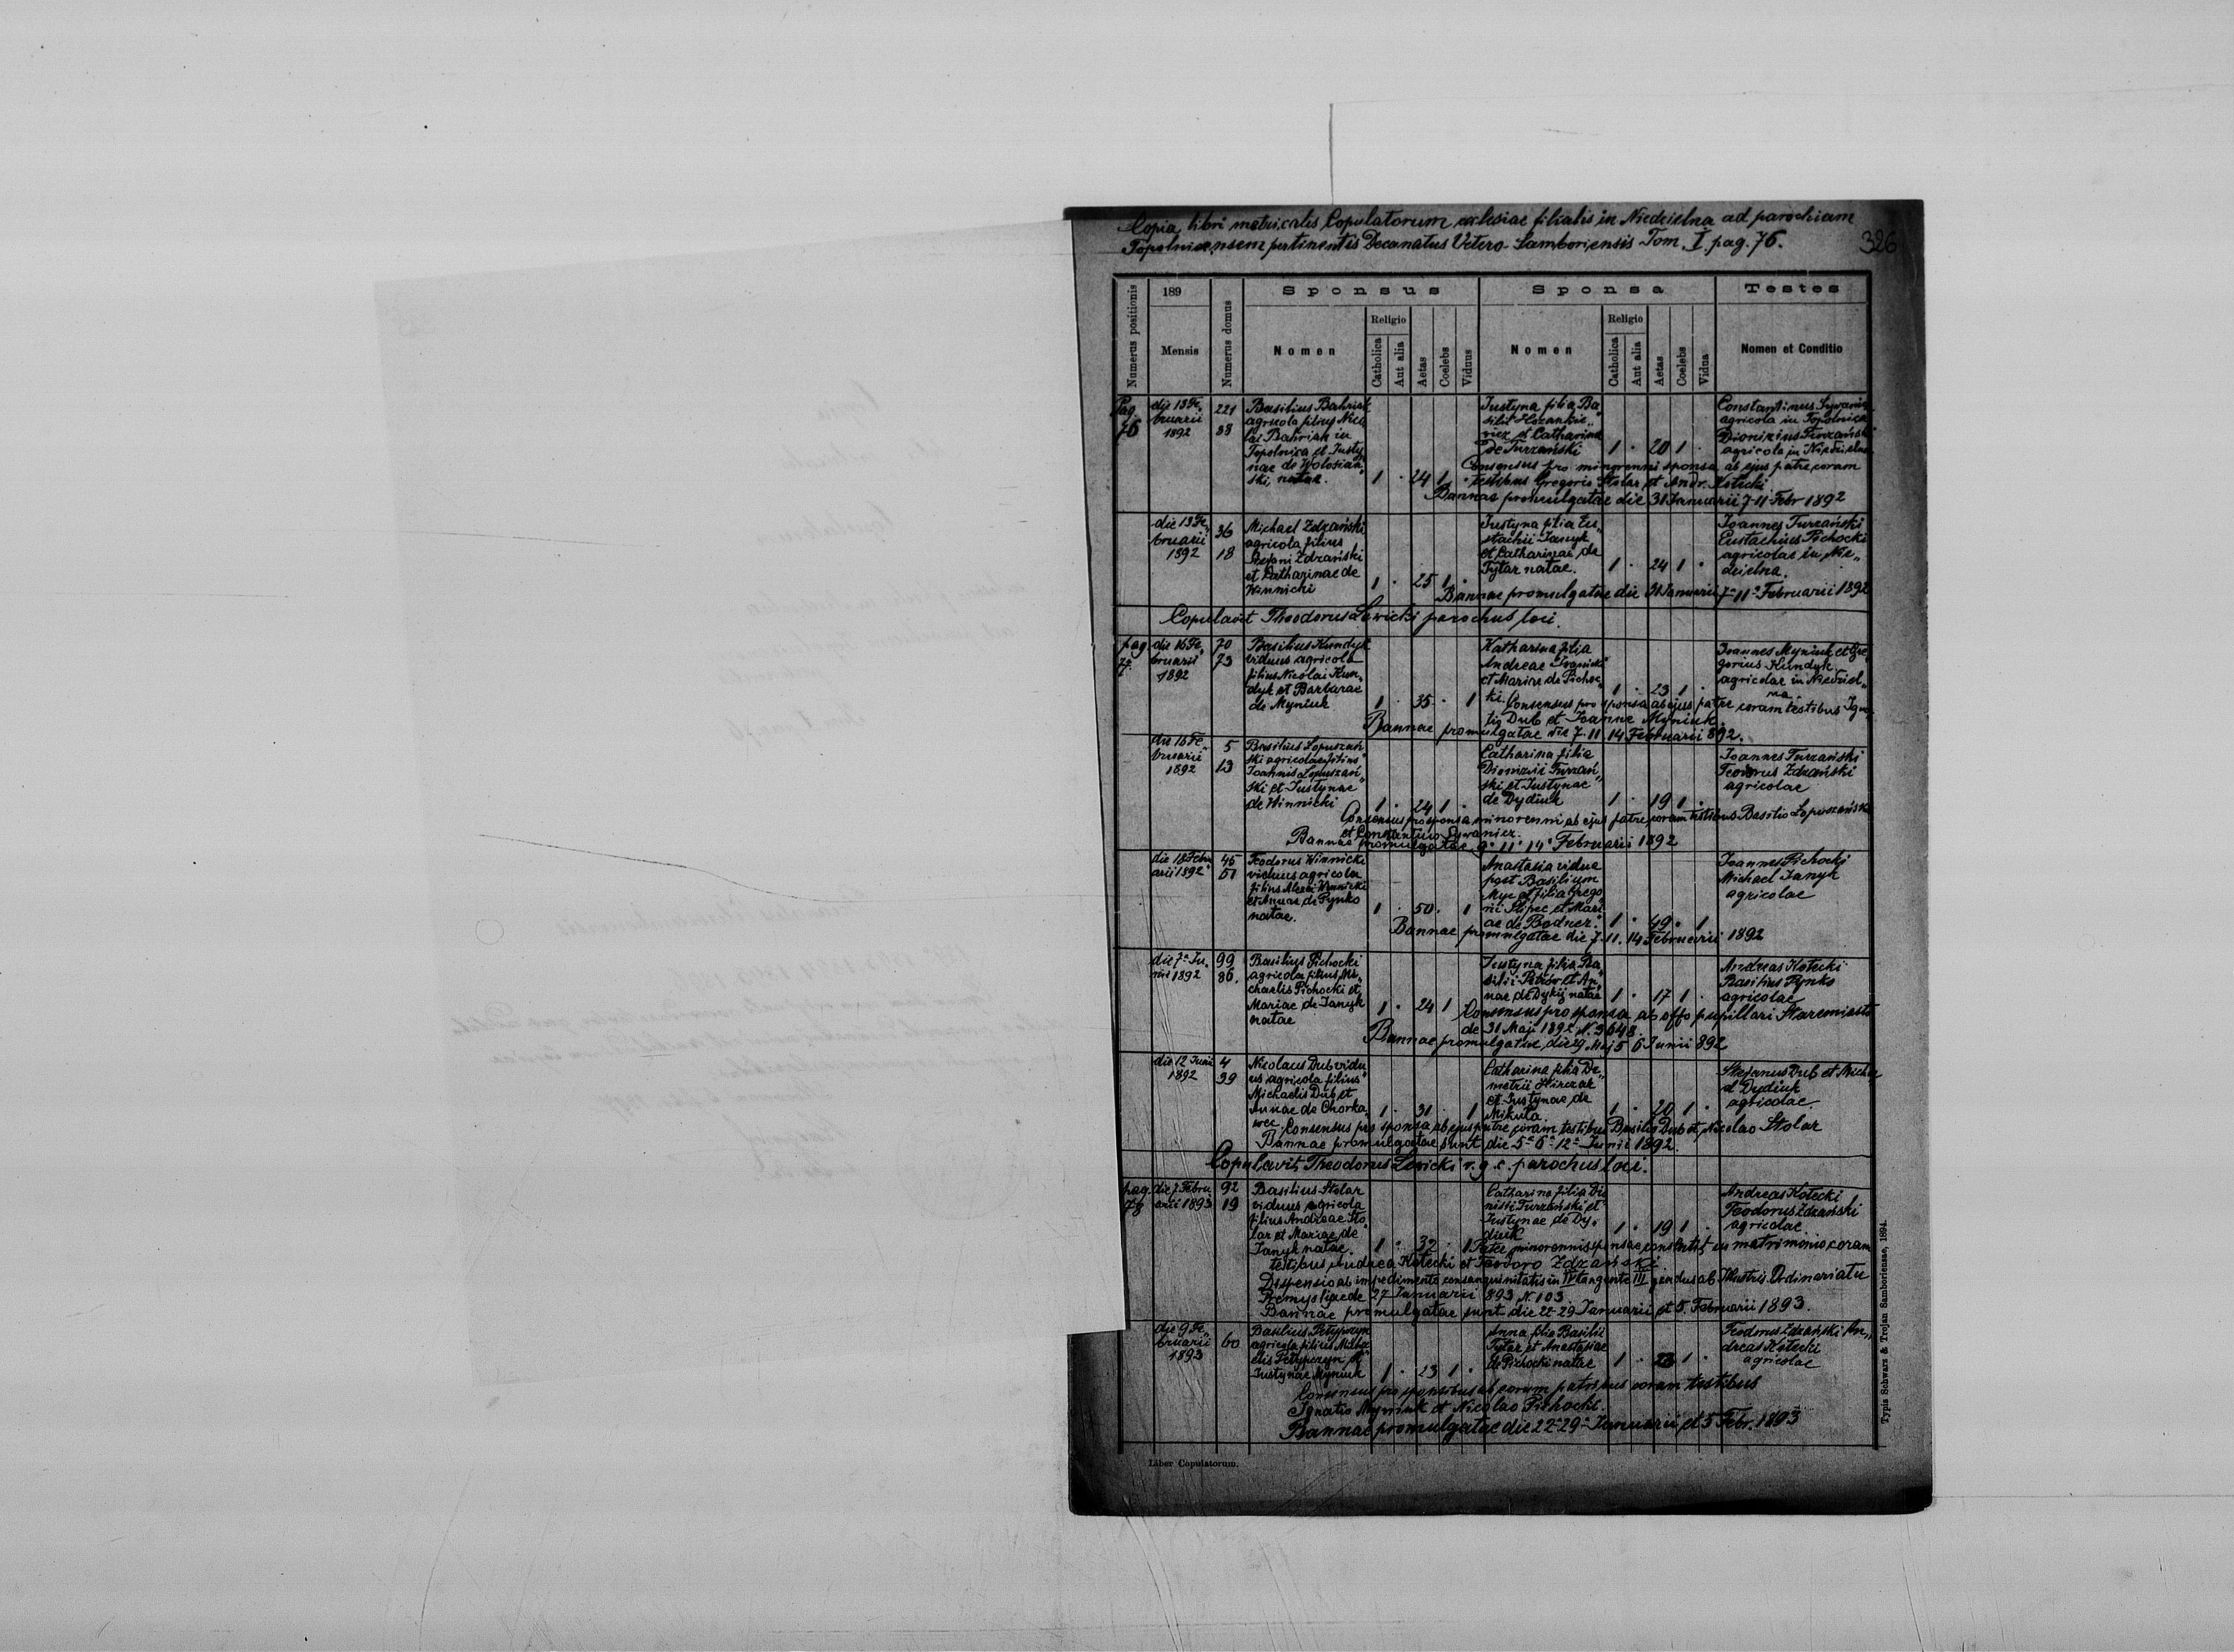 Copia libri metricalis Copulatorum eclesiae filialis in Niedzielna ad parochiam
Topolnicensem pertinentis Decanatus Vetero-Samboriensis Tom. I. pag. 76.
326
Numerus positionis
189
Mensis
Numerus domus
Sponsus
Nomen
Religio
Catholica
Aut alia
Aetas
Coelebs
Viduus
Sponsa
Nomen
Religio
Catholica
Aut alia
Aetas
Coelebs
Vidua
Testes
Nomen et Conditio
Pag. 76
die 13 Fe„
bruarii
1892
221
88
Basilius Bahriak
agricola filius Nico
lai Bahriak in
Topolnica et Justy
nae de Wolosiań„
ski, natae.
1 · 24 1 ·
Justyna filia Ba„
silii
et Catharina
de Turzański
1 · 20 1 ·
Constantinus
agricola in Topolnica
Dionizius Turzański
agricola in Niedzielna
Consensus pro minorenni sponsa ab ejus patre coram
testibus Gregorio Stolar et Andr. Kotecki
Bannae promulgatae die 31 Januarii 7-11-Febr 1892
die 13 Fe„
bruarii
1892
36
18
Michael Zdzański
agricola filius
Stefani Zdzański
et Catharinae de
Winnicki
1 · 25 1 ·
Justyna filia Eu„
stachii Janyk
et Catharinae de
Tytar natae.
1 · 24 1 ·
Joannes Turzański
Eustachius Pichocki
agricolae in Nie„
dzielna.
Bannae promulgatae die 31 Januarii 7-11- Februarii 1892
Copulavit Theodorus Lewicki parochus loci.
pag.
die 16 Fe„
bruarii
1892
70
73
Basilius Kundyk
viduus agricola
filius Nicolai Kun„
dyk et Barbarae
de Myniuk
1 · 35 · 1
Katharina filia
Andreae Iwanicki
et Mariae de Pichoc„
ki.
1 · 23 1 ·
Joannes Myniuk et Gre„
gorius Kundyk
agricolae in Niedziel„
na.
Consensus pro sponsa ab ejus patre coram testibus
Dub et Joanne Myniuk.
Bannae promulgatae die 7. 11 14 Februarii 892.
die 16 Fe„
bruarii
1892
5
13
Basilius Lopuszań
ski agricola filius
Joannis Lopuszań„
ski et Justynae
de Winnicki
1 · 24 1 ·
Catharina filia
Dionizii Turzań„
ski et Justynae
de Dydiuk
1 · 19 1 ·
Joannes Turzański
Teodorus Zdzański
agricolae
Consensus pro sponsa minorenni ab ejus patre coram testibus Basilio Lopuszański
et Constantino
Bannae promulgatae 11 14 Februarii 1892
die 18 Febru
arii 1892
45
51
Teodorus Winnicki
viduus agricola
filius Alexii Winnicki
et Annae de Pynko
natae.
1 · 50 · 1
Anastasia vidua
post Basilium
Myc et filia Grego
rii et Mari
ae de Bodnez.
1 · 49 · 1
Joannes Pichocki
Michael Janyk
agricolae
Bannae promulgatae die 7. 11. 14 Februarii 1892
die 7 Ju„
nii 1892
99
86.
Basilius Pichocki
agricola filius Mi„
chaelis Pichocki et
Mariae de Janyk
natae
1 · 24 1
Justyna filia Ba„
silii Petrów et An„
nae de Dykij natae
1 · 17 1 ·
Andreas Kotecki
Basilius Pynko
agricolae
Consensus pro sponsa ab offo pupillari Staremiasto
de 31 Maji 1892 N. 3648.
Bannae promulgatae die 29 Maj 5 6 Junii 892
die 12 Junii
1892
4
39
Nicolaus Dub vidu„
us agricola filius
Michaelis Dub et
Annae de Chorka„
wec.
1 · 31 · 1
Catharina filia De„
metrii Hirczak
et Justynae de
Mikuta.
1 · 20 1 ·
Stefanus Dub et Micha
el Dydiuk
agricolae.
Consensus pro sponsa ab ejus patre coram testibus Basilio Dub et Nicolao Stolar
Bannae promulgatae sunt die 5- 6- 12- Junii 1892.
Copulavit Theodorus Lewicki r. g. c. parochus loci.
pag. 78
die 7 Febru
arii 1893
92
19
Basilius Stolar
viduus agricola
filius Andreae Sto„
lar et Mariae de
Janyk natae.
1 · 32 · 1
Catharina filia Di
nisii Turzański et
Justynae de Dy„
diuk
1 · 19 1 ·
Andreas Kotecki
Teodorus Zdzański
agricolae
Pater minorennis sponsae consentit in matrimonio coram
testibus Andrea Kotecki et Teodoro Zdzański
Dispensio ab impedimento consanguinitatis in IV tangente III gradus ab Illustris. Ordinariatu
Premysliae de 27 Januarii 893 N. 103
Bannae promulgatae sunt die 22-29 Januarii et 5. Februarii 1893.
die 9 Fe„
bruarii
1893
60
Basilius Petypczyn
agricola filius Micha
elis Petypczyn et
Justynae Myniuk
1 · 23 1 ·
Anna filia Basilii
Tytar et Anastasiae
de Pichocki natae
1 · 23 1 ·
Teodorus Zdzański An„
dreas Kotecki
agricolae
Consensus pro sponsibus ab eorum patribus coram testibus
Ignatio Myniuk et Nicolao Pichocki.
Bannae promulgatae die 22-29- Januarii et 5 Febr. 1893
Liber Copulatorum.
Typis Schwarz & Trojan Samboriense, 1894.